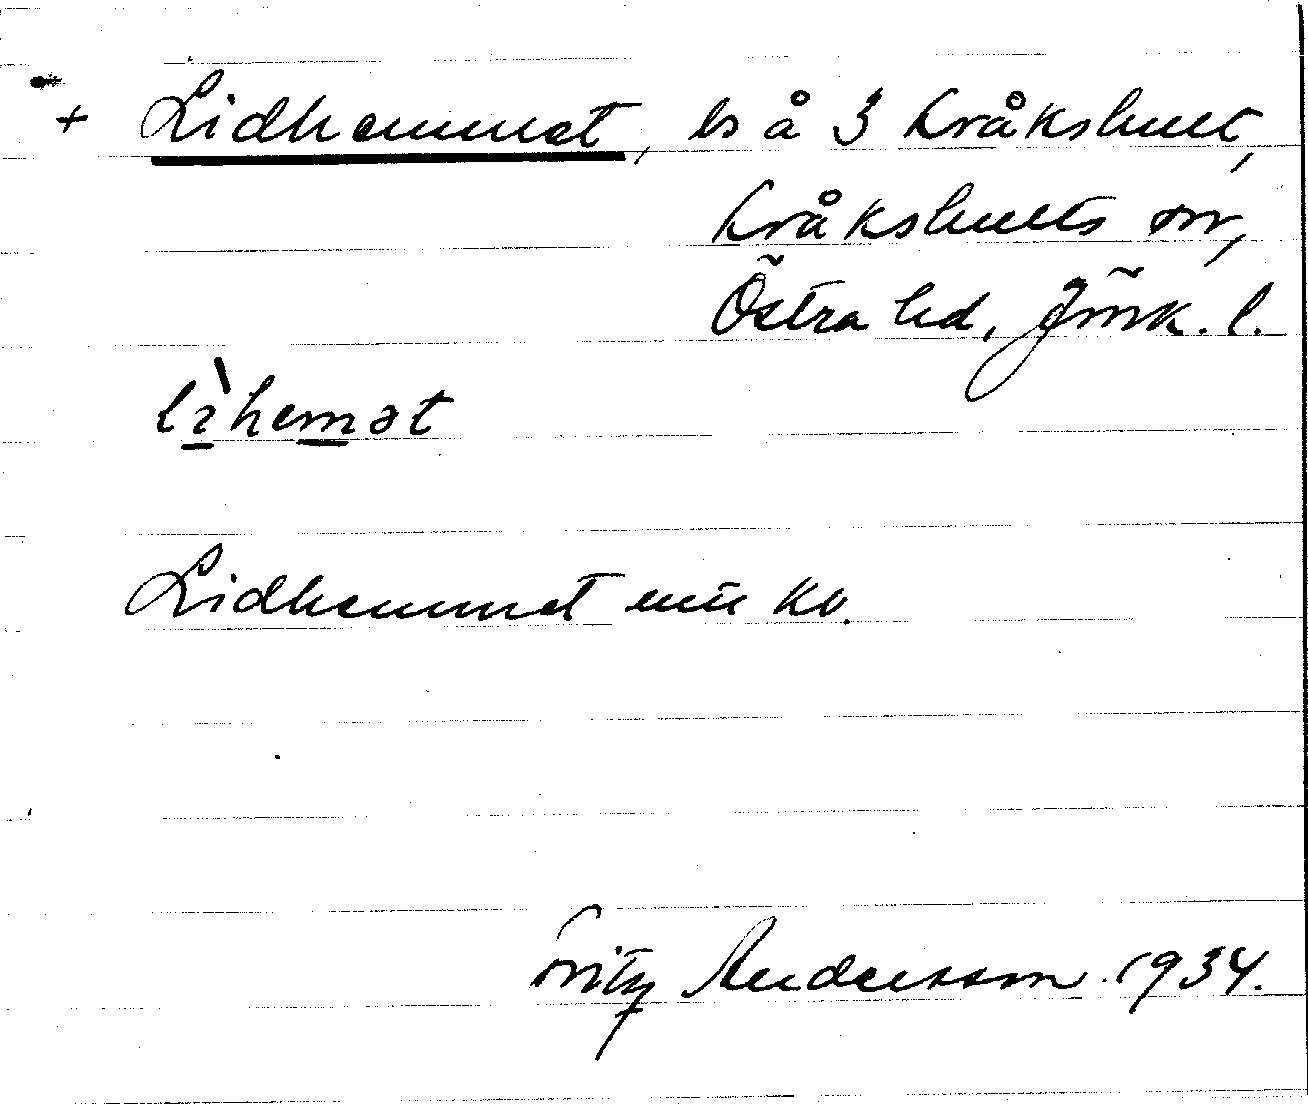 + Lidhemmet, ls å 3 Kråkshult,
Kråkshults sn,
Östra hd, Jönk. l.
lìhemət
Lidhemmet enn. kv.
Fritz Andersson 1934.